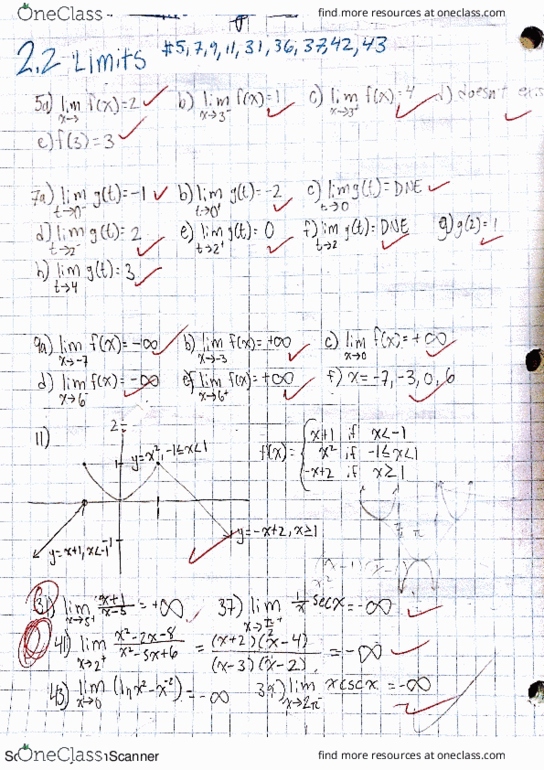 OneClass find more resources at oneclass.com
2.2 Limits #5,7,9,11,31,36,37,42,43
5a) lim x→3 f(x)=2 b) lim x→3⁻ f(x)=1 c) lim x→3⁺ f(x)=4 d) doesn't
e) f(3)=3
7a) lim t→0⁻ g(t)=-1 b) lim t→0⁺ g(t)=-2 c) lim t→0 g(t)=DNE
d) lim t→2⁻ g(t)=2 e) lim t→2⁺ g(t)=0 f) lim t→2 g(t)=DNE g) g(2)=1
h) lim t→4 g(t)=3
9a) lim x→-7 f(x)=-∞ b) lim x→-3 f(x)=+∞ c) lim x→0 f(x)=+∞
d) lim x→6⁻ f(x)=-∞ e) lim x→6⁺ f(x)=+∞ f) x=-7,-3,0,6
11)
2
1
-1
y=x²,-1≤x<1
y=x+1,x<-1
y=-x+2,x≥1
f(x)={ x+1 if x<-1
x² if -1≤x<1
-x+2 if x≥1
31) lim x→5⁺ (x+1)/(x-5) =+∞ 37) lim 1/x secx=-∞
41) lim x→2⁺ (x²-2x-8)/(x²-5x+6) = (x+2)(x-4)/(x-3)(x-2) =-∞
43) lim x→0 (lnx²-x⁻²)=-∞ lim x→2π⁻ xcscx=-∞
OneClass Scanner find more resources at oneclass.com